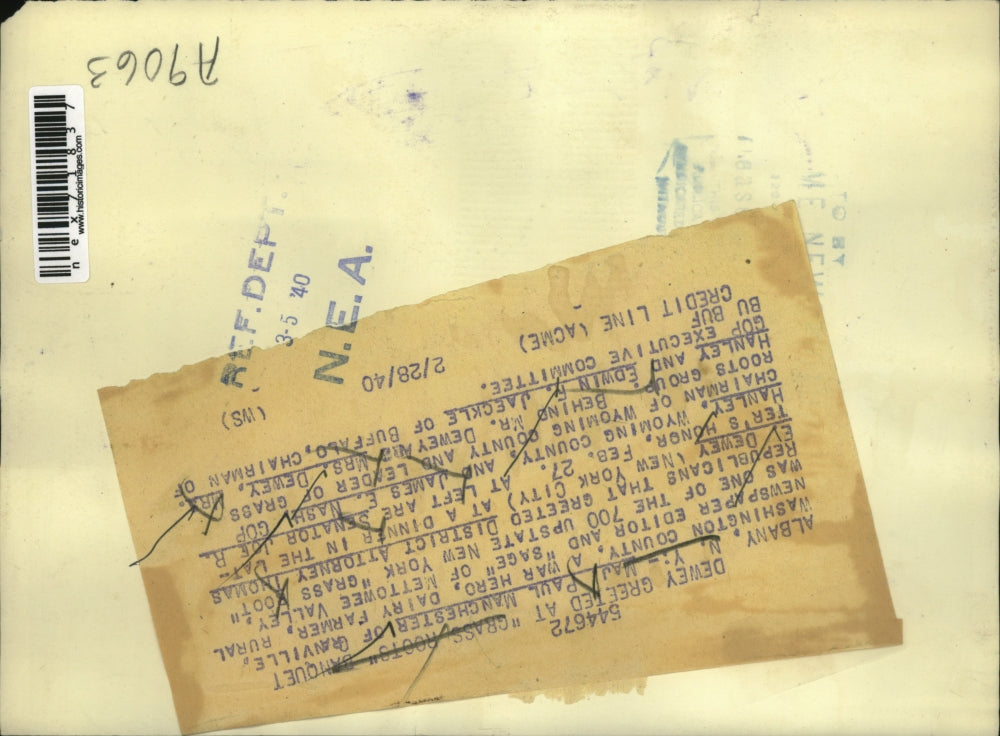 A9063
www.historicimages.com
nex71837
REF. DEPT.
3-5 '40
N.E.A.
544672
DEWEY GREETED AT "GRASS ROOTS" BANQUET
ALBANY, N. Y. -- MAJ. PAUL MANCHESTER OF GRANVILLE,
WASHINGTON COUNTY, A WAR HERO, DAIRY FARMER, RURAL
NEWSPAPER EDITOR AND "SAGE" OF METTOWEE VALLEY,
WAS ONE OF THE 700 UPSTATE NEW YORK "GRASS ROOT"
REPUBLICANS THAT GREETED DISTRICT ATTORNEY THOMAS
E. DEWEY (NEW YORK CITY) AT A DINNER IN THE LAT-
TER'S HONOR, FEB. 27. AT LEFT ARE SENATOR JOE R.
HANLEY, WYOMING COUNTY, AND JAMES E. NASH, GOP
CHAIRMAN OF WYOMING COUNTY AND LEADER OF GRASS
ROOTS GROUP. BEHIND MR. DEWEY ARE MRS. DEWEY, MRS.
HANLEY AND EDWIN F. JAECKLE OF BUFFALO, CHAIRMAN OF
GOP EXECUTIVE COMMITTEE.
BU BUF
CREDIT LINE (ACME) 2/28/40 (WS)